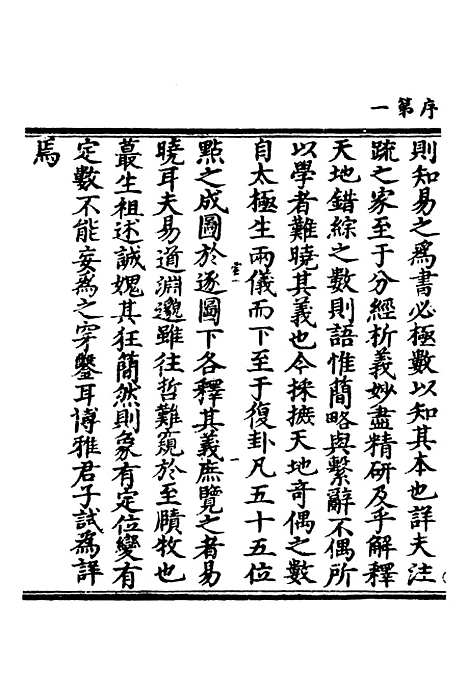 序第一
則知易之爲書必極數以知其本也詳夫注
疏之家至于分經析義妙盡精研及乎解釋
天地錯綜之數則語惟簡略與繫辭不偶所
以學者難曉其義也今採摭天地奇偶之數
自太極生兩儀而下至于復卦凡五十五位
點之成圖於逐圖下各釋其義庶覽之者易
曉耳夫易道淵邈雖往哲難窺於至賾牧也
蕞生祖述誠媿其狂簡然則象有定位變有
定數不能妄爲之穿鑿耳博雅君子試爲詳
焉